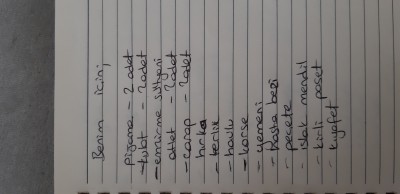 Benim için;
pijama - 2 adet
- tülot - 2 adet
- emzirme sütyeni
atlet - 2 adet
- çorap - 2 adet
hırka
- terlik
- havlu
- korse
- yemeni
- hasta bezi
- peçete
- ıslak mendil
- kirli poşet
- kıyafet